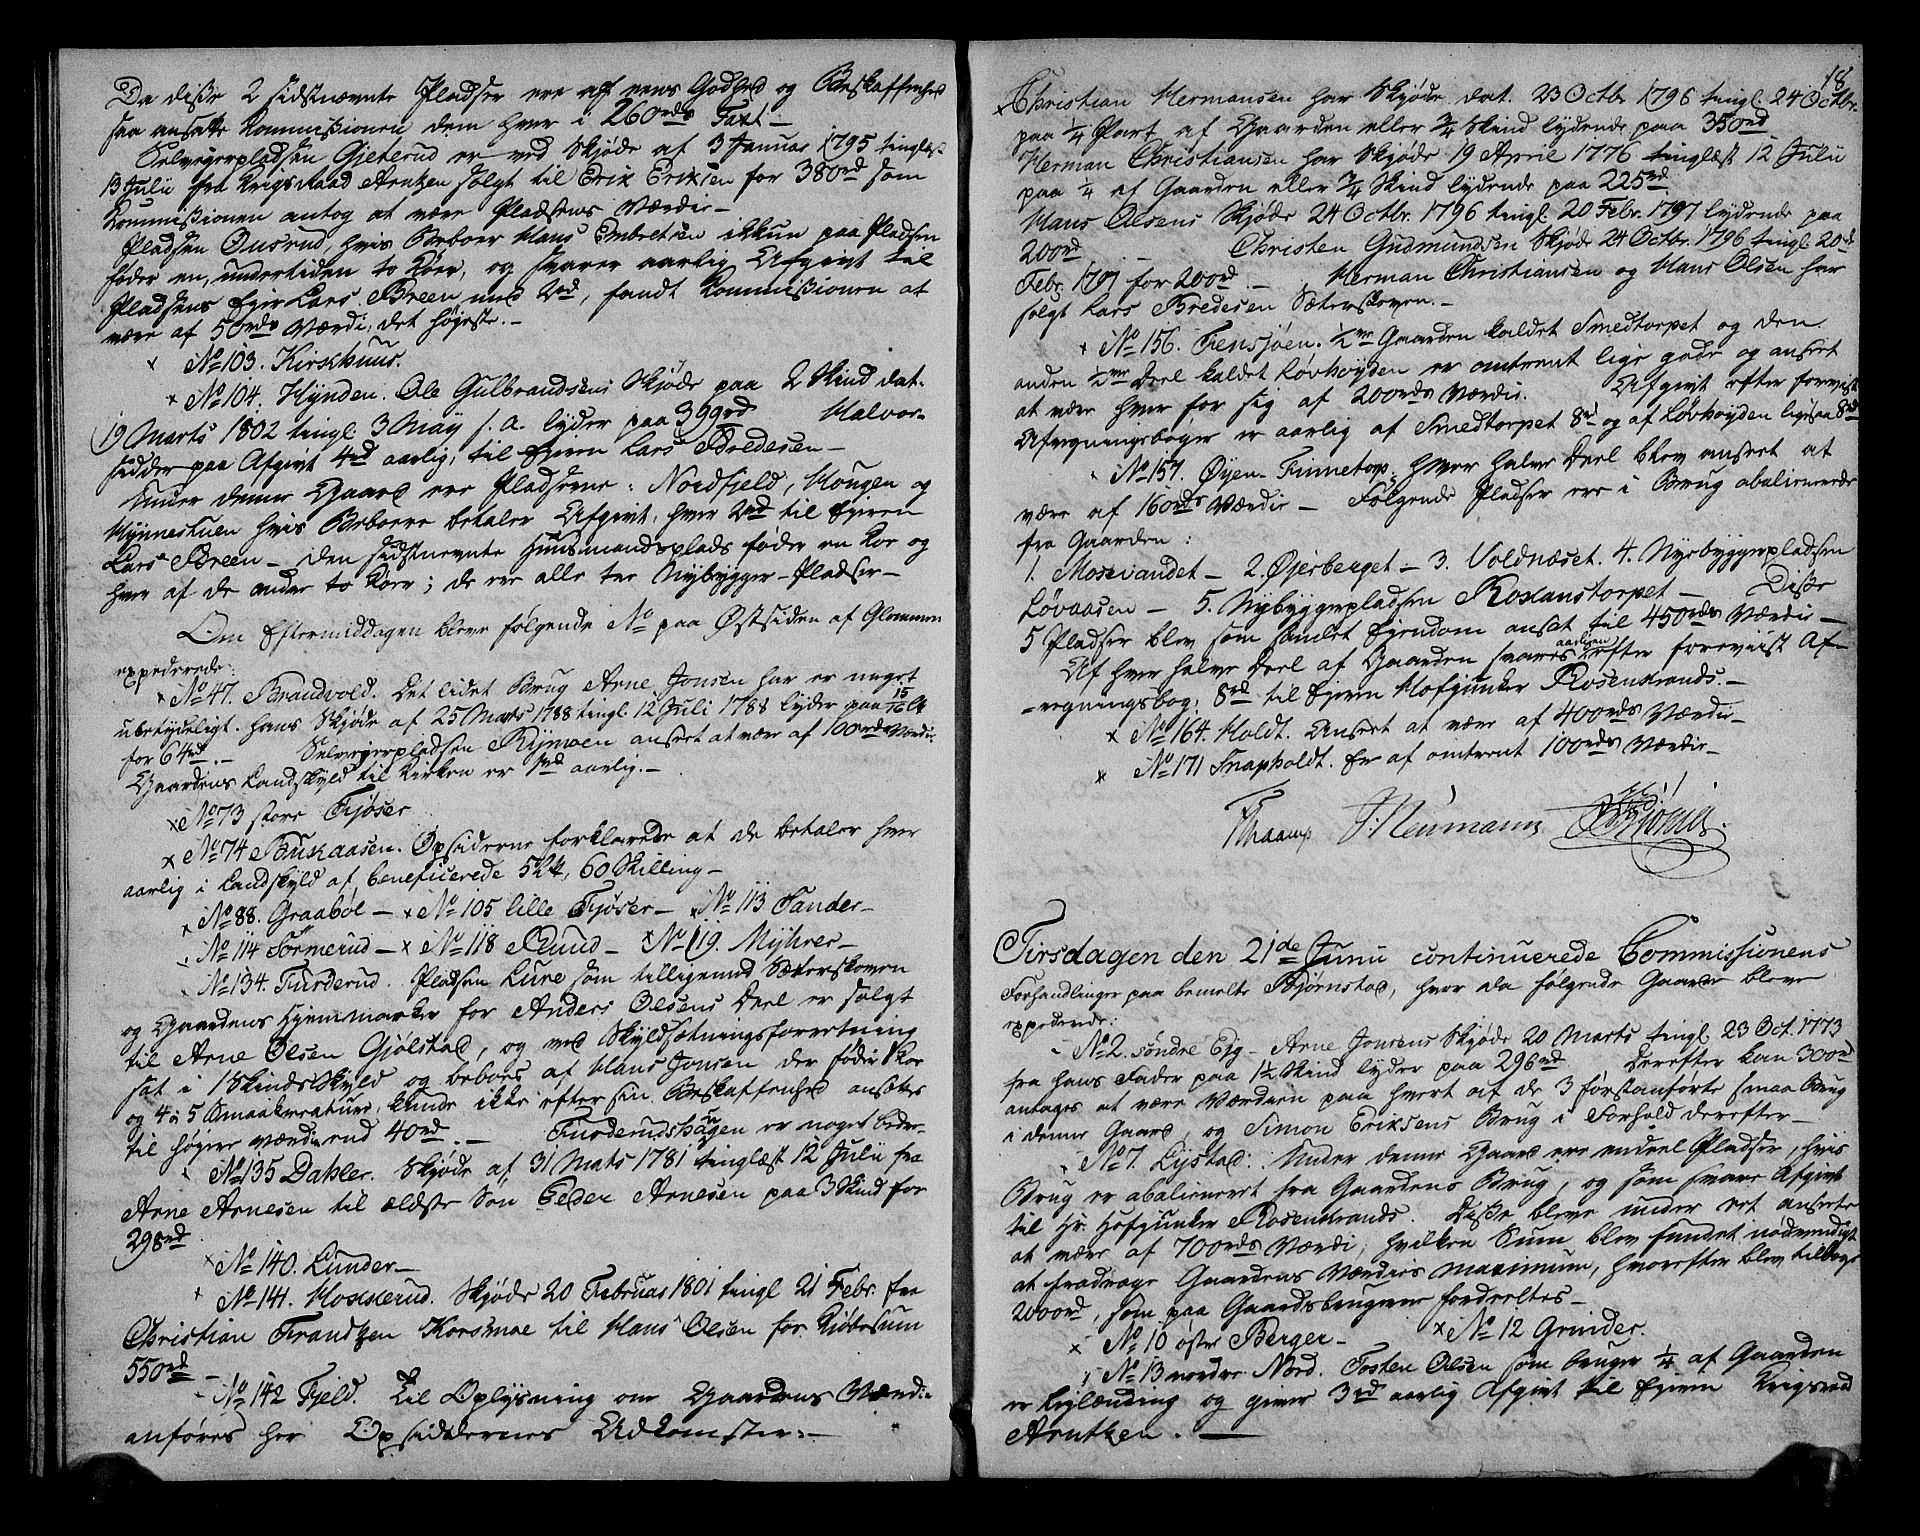 Da disse 2 sidstnævnte Pladser ere af eens Godhed og Beskaffenhed
saa ansatte Kommissionen dem hver i 260rds Taxt –
Selveigerpladsen Gjeterud er ved Skjøde af 3 Januar 1795 tinglæst
13 Julii fra Krigsraad Arntzen solgt til Erik Eriksen for 380rd som
Kommissionen antog at være Pladsens Værdie –
Pladsen Ousrud, hvis Beboer Hans Embretsen ikkun paa Pladsen
føder en, undertiden to Køer, og svarer aarlig Afgivt til
Pladsens Ejer Lars Breen med 2rd, fandt Kommissionen at
være af 50rds Værdi, det højeste. –
× No 103. Kirkhuus.
× No 104. Hynden. Ole Gulbrandsens Skjøde paa 2 Skind dat.
19 Marts 1802 tingl. 3 May s. a. lyder paa 399rd Halvor
sidder paa Afgivt 4rd aarlig, til Ejeren Lars Bredesen –
Under denne Gaard ere Pladserne: Nordfjeld, Hougen og
Hynnestuen hvis Beboere betaler Afgivt, hver 2rd til Ejeren
Lars Breen – den sidstnævnte Huusmandsplads føder en Koe og
hver af de andre to Køer; de ere alle tre Nybygger-Pladser –
Om Eftermiddagen bleve følgende No paa Østsiden af Glommen
expederede:
× No 47. Brandvold. Det lidet Brug Arne Jonsen har er meget
ubetydeligt. hans Skjøde af 25 Marts 1788 tingl. 12 Juli 1788 lyder paa 15/16 ℔
for 64rd. – Selveigerpladsen Rijmoen anseet at være af 100rds Værdie.
Gaardens Landskyld til Kirken er 1rd aarlig. –
× No 73 store Tjøser
× No 74 Buskaasen. Opsidderne forklarede at de betaler hver
aarlig i Landskyld af beneficerede 52, 60 Skilling –
× No 88. Graabøl – × No 105 lille Tjøser – × No 113 Tander –
No 114 Tørmerud – × No 118 Ruud – × No 119. Myhrer –
No 134. Furderud. Pladsen Lure som tilligemed Sæterskoven
og Gaardens Hjemmarker for Anders Olsens Deel er solgt
til Arne Olsen Gjølstad, og ved Skyldsætningsforretning
sat i 1 Skinds Skyld og beboes af Hans Jonsen der føder 1 Koe
og 4 à 5 Smaakreature, kunde ikke efter sin Beskaffenhed ansættes
til højere værdie end 40rd. – Furderudshagen er noget bedre –
No 135 Dahler. Skjøde af 31 Mats 1781 tinglæst 12 Julii fra
Arne Arnesen til ældste Søn Peder Arnesen paa 3 Skind for
298rd.
× No 140. Lunder –
× No 141. Mosserud. Skjøde 20 Februar 1801 tingl 21 Febr. fra
Christian Frandtzen Korsmoe til Hans Olsen for Kjøbesum
550rd –
No 142 Fjeld. Til Oplysning om Gaardens Værdie
anføres her Opsiddernes Adkomster: –
18
× Christian Hermansen har Skjøde dat. 23 Octbr 1796 tingl. 24 Octbr.
paa 1/4 Part af Gaarden eller 3/4 Skind lydende paa 350rd
Herman Christiansen har Skjøde 19 April 1776 tinglæst 12 Julii
paa 1/4 af Gaarden eller 3/4 Skind lydende paa 225rd
Hans Olsens Skjøde 24 Octbr. 1796 tingl. 20 Febr. 1797 lydende paa
200rd – Christen Gudmundsen Skjøde 24 Octbr. 1796 tingl. 20de
Febr. 1797 for 200rd. – Herman Christiansen og Hans Olsen har
solgt Lars Bredesen Sæterskoven. –
× No 156. Tensjøen. 1/2ve Gaarden kaldet Smedtorpet og den
anden 1/2ve Deel kaldet Løvhøyden er omtrent lige gode og anseet
at være hver for sig af 200rds Værdie. Afgivt efter foreviist
Afregningsbøger er aarlig af Smedtorpet 8rd og af Løvhøyden ligesaa 8rd
No 157. Øyen-Finnetorp; hver halve Deel blev anseet at
være af 160rds Værdie – Følgende Pladser ere i Brug abalienerede
fra Gaarden:
1. Mosevandet – 2. Øjerberget – 3. Voldnæset. 4. Nyebyggerpladsen
Løvaasen – 5. Nybyggerpladsen Roxanstorpet – Disse
5 Pladser blev som samlet Ejendom ansat til 450rds Værdie –
Af hver halve Deel af Gaarden svares aarligen efter foreviist Af-
-regningsbog; 8rd til Ejeren Hofjunker Rosenkrands. –
× No 164. Holdt. Anseet at være af 400rds Værdie –
× No 171 Snapholdt. Er af omtrent 100rds Værdie –
Thraamp J: Neumann
Tirsdagen den 21de Junii continuerede Commissionens
Forhandlinger paa bemelte Bjørnstad, hvor da følgende Gaarde bleve
expederede:
No 2. søndre Ejg – Arne Jonsens Skjøde 20 Marts tingl. 23 Oct. 1773
fra hans Fader paa 1 1/2 Skind lyder paa 296rd Derefter kan 300rd
antages at være Værdien paa hvert af de 3 førstanførte smaa Brug
i denne Gaard, og Simon Eriksens Brug i Forhold derefter –
No 7. Lystad: Under denne Gaard ere endeel Pladser, hvis
Brug er abalieneret fra Gaardens Brug, og som svare Afgivt
til Hr. Hofjunker Rosenkrands. Disse bleve under eet ansete
at være af 700rds Værdi, hvilken Sum blev fundet nødvendigt
at fradrage Gaardens Værdies maximum, hvorefter blev tilbage
2000rd, som paa Gaardsbrugerne fordeeltes –
× No 10 østre Berger – × No 12 Grinder.
No 13 nordre Nord. Tosten Olsen som bruger 1/4 af Gaarden
er Lejlænding og giver 3rd aarlig Afgivt til Ejeren Krigsraad
Arntzen. –